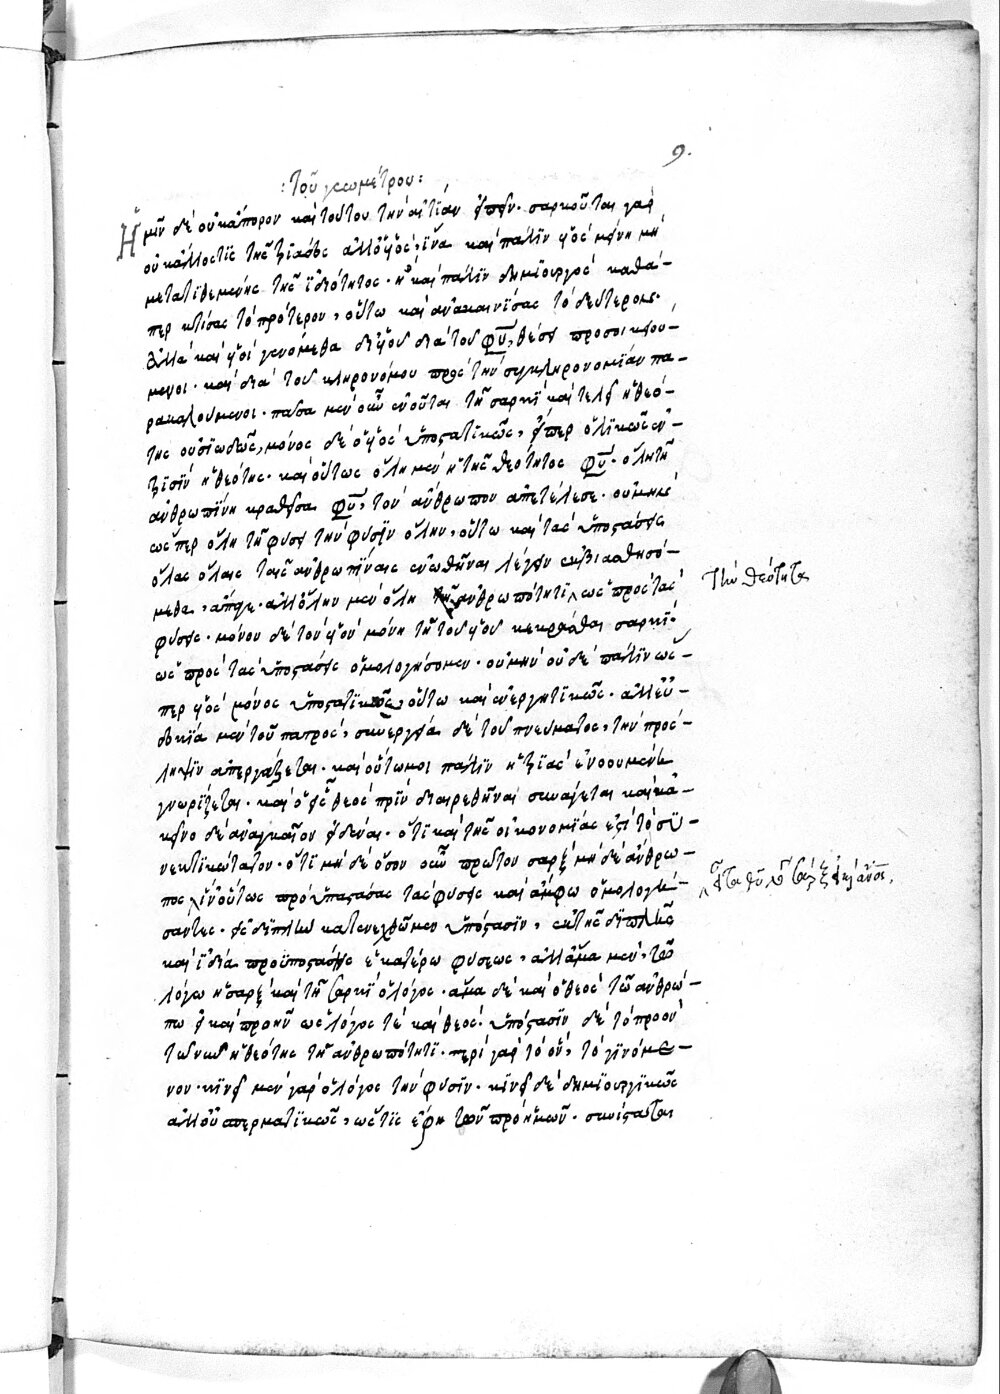 9.
: Τοῦ γεωμέτρου :
Ἡμῖν δὲ οὐκ ἄπορον καὶ τούτου τὴν αἰτίαν εἰπεῖν· σαρκοῦται γὰρ
οὐκ ἄλλος τίς τῆς τριάδος ἀλλ' ὁ υἱὸς, ἵνα καὶ πάλιν υἱὸς μένῃ μὴ
μετατιθεμένης τῆς ἰδιότητος· ἢ καὶ πάλιν δημιουργὸς καθά-
περ κτίσας τὸ πρότερον, οὕτω καὶ ἀνακαινίσας τὸ δεύτερον·
ἀλλὰ καὶ υἱοὶ γενόμεθα δι' υἱοῦ διὰ τοῦ θῡ, θέσει προσοικειού-
μενοι· καὶ διὰ τοῦ κληρονόμου πρὸς τὴν συγκληρονομίαν πα-
ρακαλούμενοι· πᾶσα μὲν οὖν ἑνοῦται τῇ σαρκὶ καὶ τελεῖ ἡ θεό-
της οὐσιωδῶς, μόνος δὲ ὁ υἱὸς ὑποστατικῶς, εἴπερ ὁλικῶς
ἡ θεότης· καὶ οὕτως ὅλη μὲν ἡ τῆς θεότητος ὅλῃ τῇ
ἀνθρωπίνῃ κραθεῖσα τὸν ἄνθρωπον ἀπετέλεσε· οὐ μὴν
ὥσπερ ὅλη τῇ φύσει τὴν φύσιν ὅλην, οὕτω καὶ τὰς ὑποστάσεις
ὅλας ὅλαις ταῖς ἀνθρωπίναις ἑνωθῆναι λέγειν ἐκβιασθησό-
μεθα, ἄπαγε· ἀλλ' ὅλην μὲν ὅλῃ τῇ ἀνθρωπότητι ὡς πρὸς τὰς
τὴν θεότητα
φύσεις· μόνον δὲ τὸν υἱὸν μόνῃ τῇ τοῦ υἱοῦ κεκρᾶσθαι σαρκὶ·
ὡς πρὸς τὰς ὑποστάσεις ὁμολογήσομεν· οὐ μὴν οὐδὲ πάλιν ὥσ-
περ υἱὸς μόνος ὑποστατικῶς, οὕτω καὶ ἐνεργητικῶς· ἀλλ' εὐ-
δοκία μὲν τοῦ πατρὸς, συνεργία δὲ τοῦ πνεύματος, τὴν πρόσ-
ληψιν ἀπεργάζεται· καὶ οὕτω μοι πάλιν ἡ τριὰς ἑνουμένη
γνωρίζεται· καὶ ὁ εἷς θεὸς πρὶν διαιρεθῆναι συνάγεται κἀ-
κεῖνο δὲ ἀναγκαῖον εἰδέναι· ὅτι καὶ τῆς οἰκονομίας ἐστὶ τὸ συ-
νεκτικώτατον· ὅτι μὴ δὲ ὅσον οὖν πρῶτον σὰρξ μὴ δὲ ἄνθρω-
πος, ἵν' οὕτως προϋποστάσας τὰς φύσεις καὶ ἄμφω ὁμολογή-
σαντες· εἰς διπλῆν κατενεχθῶμεν ὑπόστασιν, ἐκ τῆς διπλῆς
καὶ ἰδίᾳ προϋποστάσης ἑκατέρω φύσεως, ἀλλ' ἅμα μὲν τῷ
λόγω ἡ σὰρξ καὶ τῇ σαρκὶ ὁ λόγος· ἅμα δὲ καὶ ὁ θεὸς τῷ ἀνθρώ-
πω εἰ καὶ προῆν ὡς λόγος τὲ καὶ θεὸς· ὑπόστασιν δὲ τὸ προὸν
ἡ θεότης τῇ ἀνθρωπότητι· περὶ γὰρ τὸ ὂν, τὸ γινόμε-
νον· κινεῖ μὲν γὰρ ὁ λόγος τὴν φύσιν· κινεῖ δὲ δημιουργικῶς
ἀλλ' οὐ σπερματικῶς, ὥς τις ἔφη τῶν πρὸ ἡμῶν· συνίσταται